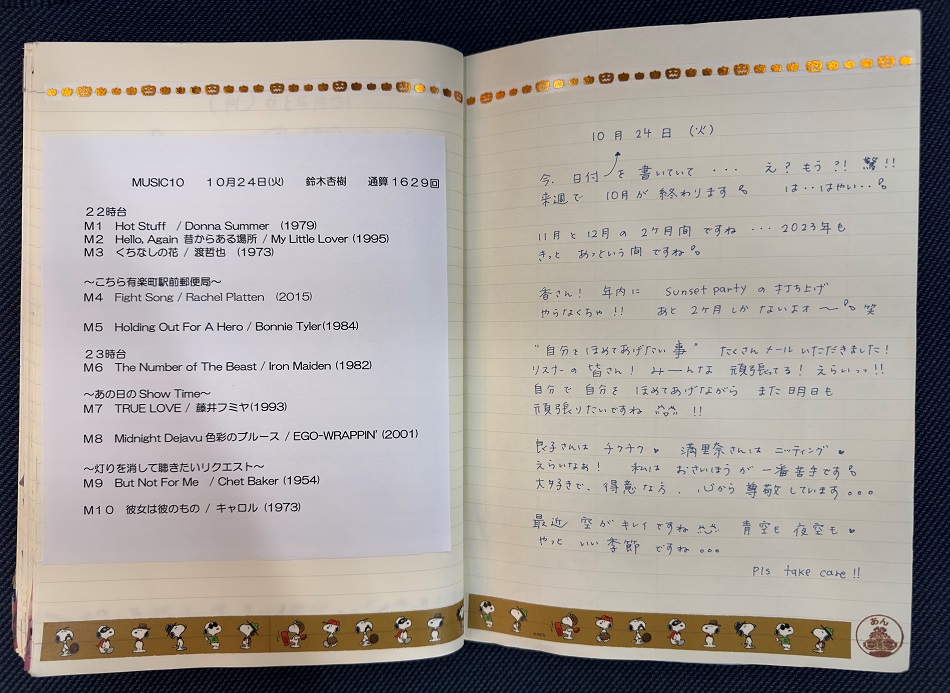 MUSIC10 10月24日(火) 鈴木杏樹 通算1629回
22時台
M1 Hot Stuff / Donna Summer (1979)
M2 Hello, Again 昔からある場所 / My Little Lover (1995)
M3 くちなしの花 / 渡哲也 (1973)
～こちら有楽町駅前郵便局～
M4 Fight Song / Rachel Platten (2015)
M5 Holding Out For A Hero / Bonnie Tyler(1984)
23時台
M6 The Number of The Beast / Iron Maiden (1982)
～あの日のShow Time～
M7 TRUE LOVE / 藤井フミヤ(1993)
M8 Midnight Dejavu 色彩のブルース / EGO-WRAPPIN' (2001)
～灯りを消して聴きたいリクエスト～
M9 But Not For Me / Chet Baker (1954)
M10 彼女は彼のもの / キャロル (1973)
10月24日 (火)
今、日付を書いていて ・・・ え？もう?! 驚!!
来週で 10月が 終わります。 は‥はやい‥。
11月と12月の2ケ月間ですね ・・・ 2023年も
きっと あっという間ですね。
香さん! 年内に sunset partyの打ち上げ
やらなくちゃ!! あと2ヶ月しかないよォ〜。笑
"自分をほめてあげたい事" たくさんメールいただきました!
リスナーの皆さん! みーんな 頑張ってる! えらいっっ!!
自分で自分を ほめてあげながら また明日も
頑張りたいですね !!
良子さんは チクチク♥ 満里奈さんは ニッティング♥
えらいなぁ! 私は おさいほうが 一番苦手です。
大好きで、得意な方、心から尊敬しています。。。
最近 空がキレイですね 青空も夜空も♥
やっと いい季節ですね。。。
Pls take care!!
あん